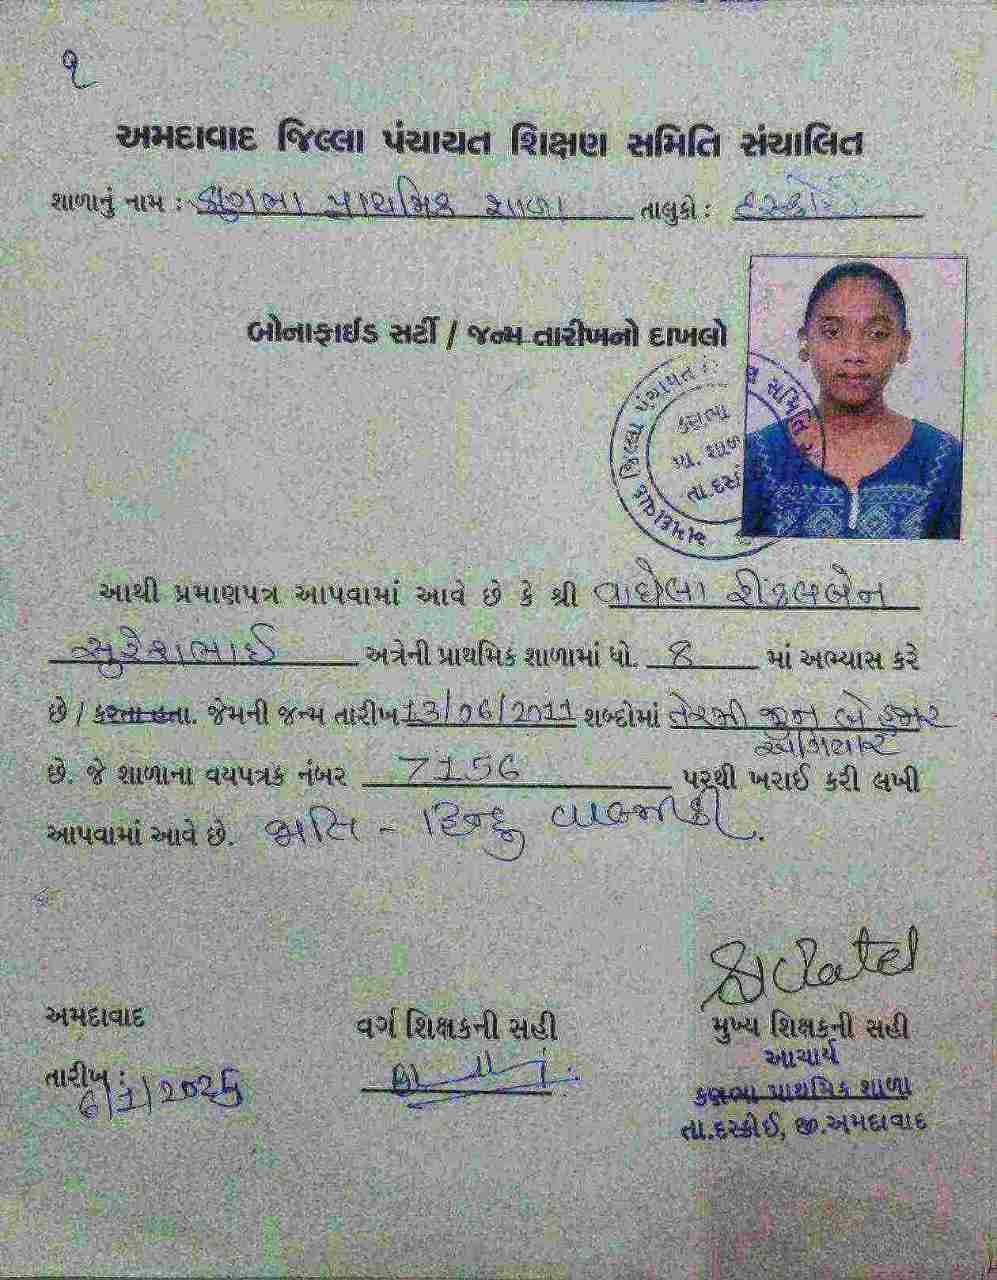 ૧
અમદાવાદ જિલ્લા પંચાયત શિક્ષણ સમિતિ સંચાલિત
શાળાનું નામ : કણભા પ્રાથમિક શાળા તાલુકો : દસ્ક્રોઇ
બોનાફાઈડ સર્ટી / જન્મ તારીખનો દાખલો
અમદાવાદ જિલ્લા પંચાયત સમિતિ
કણભા
પ્રા. શાળ
તા.દસ્ક્રો
આથી પ્રમાણપત્ર આપવામાં આવે છે કે શ્રી વાઘેલા રીંકલબેન
સુરેશભાઈ અત્રેની પ્રાથમિક શાળામાં ધો. 8 માં અભ્યાસ કરે
છે / કરતા હતા. જેમની જન્મ તારીખ 13/06/2011 શબ્દોમાં તેરમી જૂન બે હજાર
અગિયાર
છે. જે શાળાના વયપત્રક નંબર 7156 પરથી ખરાઈ કરી લખી
આપવામાં આવે છે. જાતિ - હિન્દુ વાલ્મીકી.
અમદાવાદ
તારીખ : 6/1/2025
વર્ગ શિક્ષકની સહી
મુખ્ય શિક્ષકની સહી
આચાર્ય
કણભા પ્રાથમિક શાળા
તા.દસ્ક્રોઈ, જી.અમદાવાદ